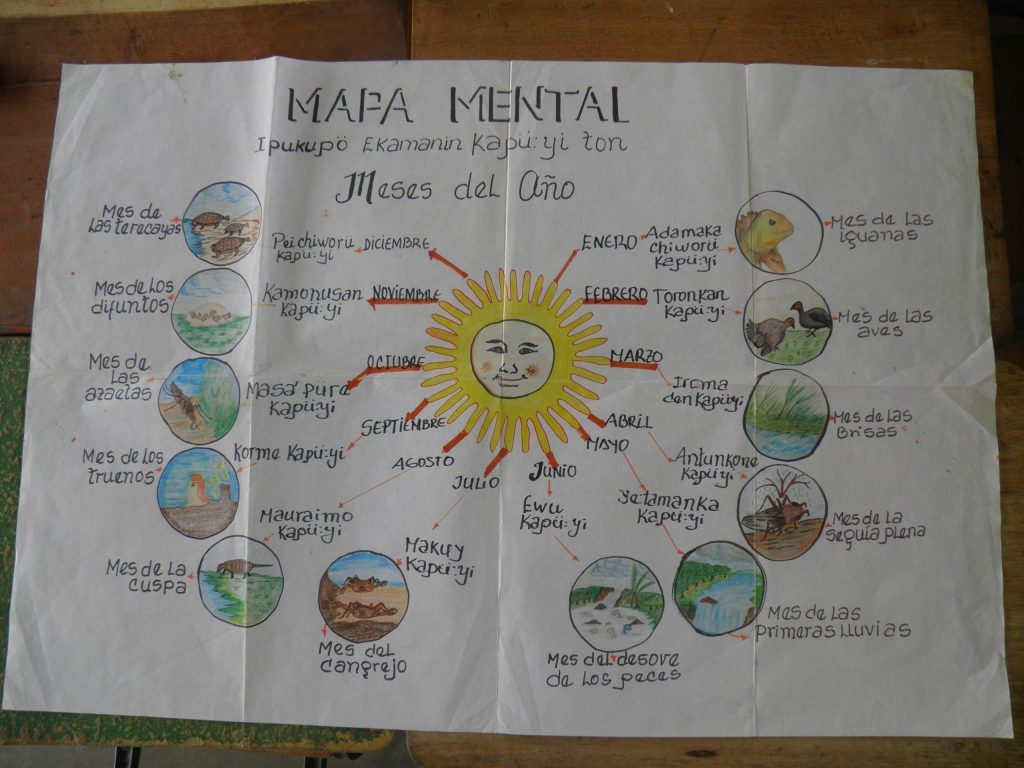 MAPA MENTAL
Ipukupö Ekamanin Kapü:yi ton
Meses del Año
ENERO
Adamaka
chiworü
Kapü:yi
Mes de las
iguanas
FEBRERO
Toronkan
Kapü:yi
Mes de las
aves
MARZO
Irema
den Kapü:yi
Mes de las
Brisas
ABRIL
Antunkone
Kapü:yi
Mes de la
seguia plena
MAYO
Yetamanka
Kapü:yi
Mes de las
primeras lluvias
JUNIO
Ewu
Kapü:yi
Mes del desove
de los peces
JULIO
Makuy
Kapü:yi
Mes del
cangrejo
AGOSTO
Mauraimo
Kapü:yi
Mes de la
cuspa
SEPTIEMBRE
Korme Kapü:yi
Mes de los
truenos
OCTUBRE
Masa' pure
Kapü:yi
Mes de
las
NOVIEMBRE
Kamonusan
Kapü:yi
Mes de los
difuntos
DICIEMBRE
Peichiworü
Kapü:yi
Mes de
las terecayas